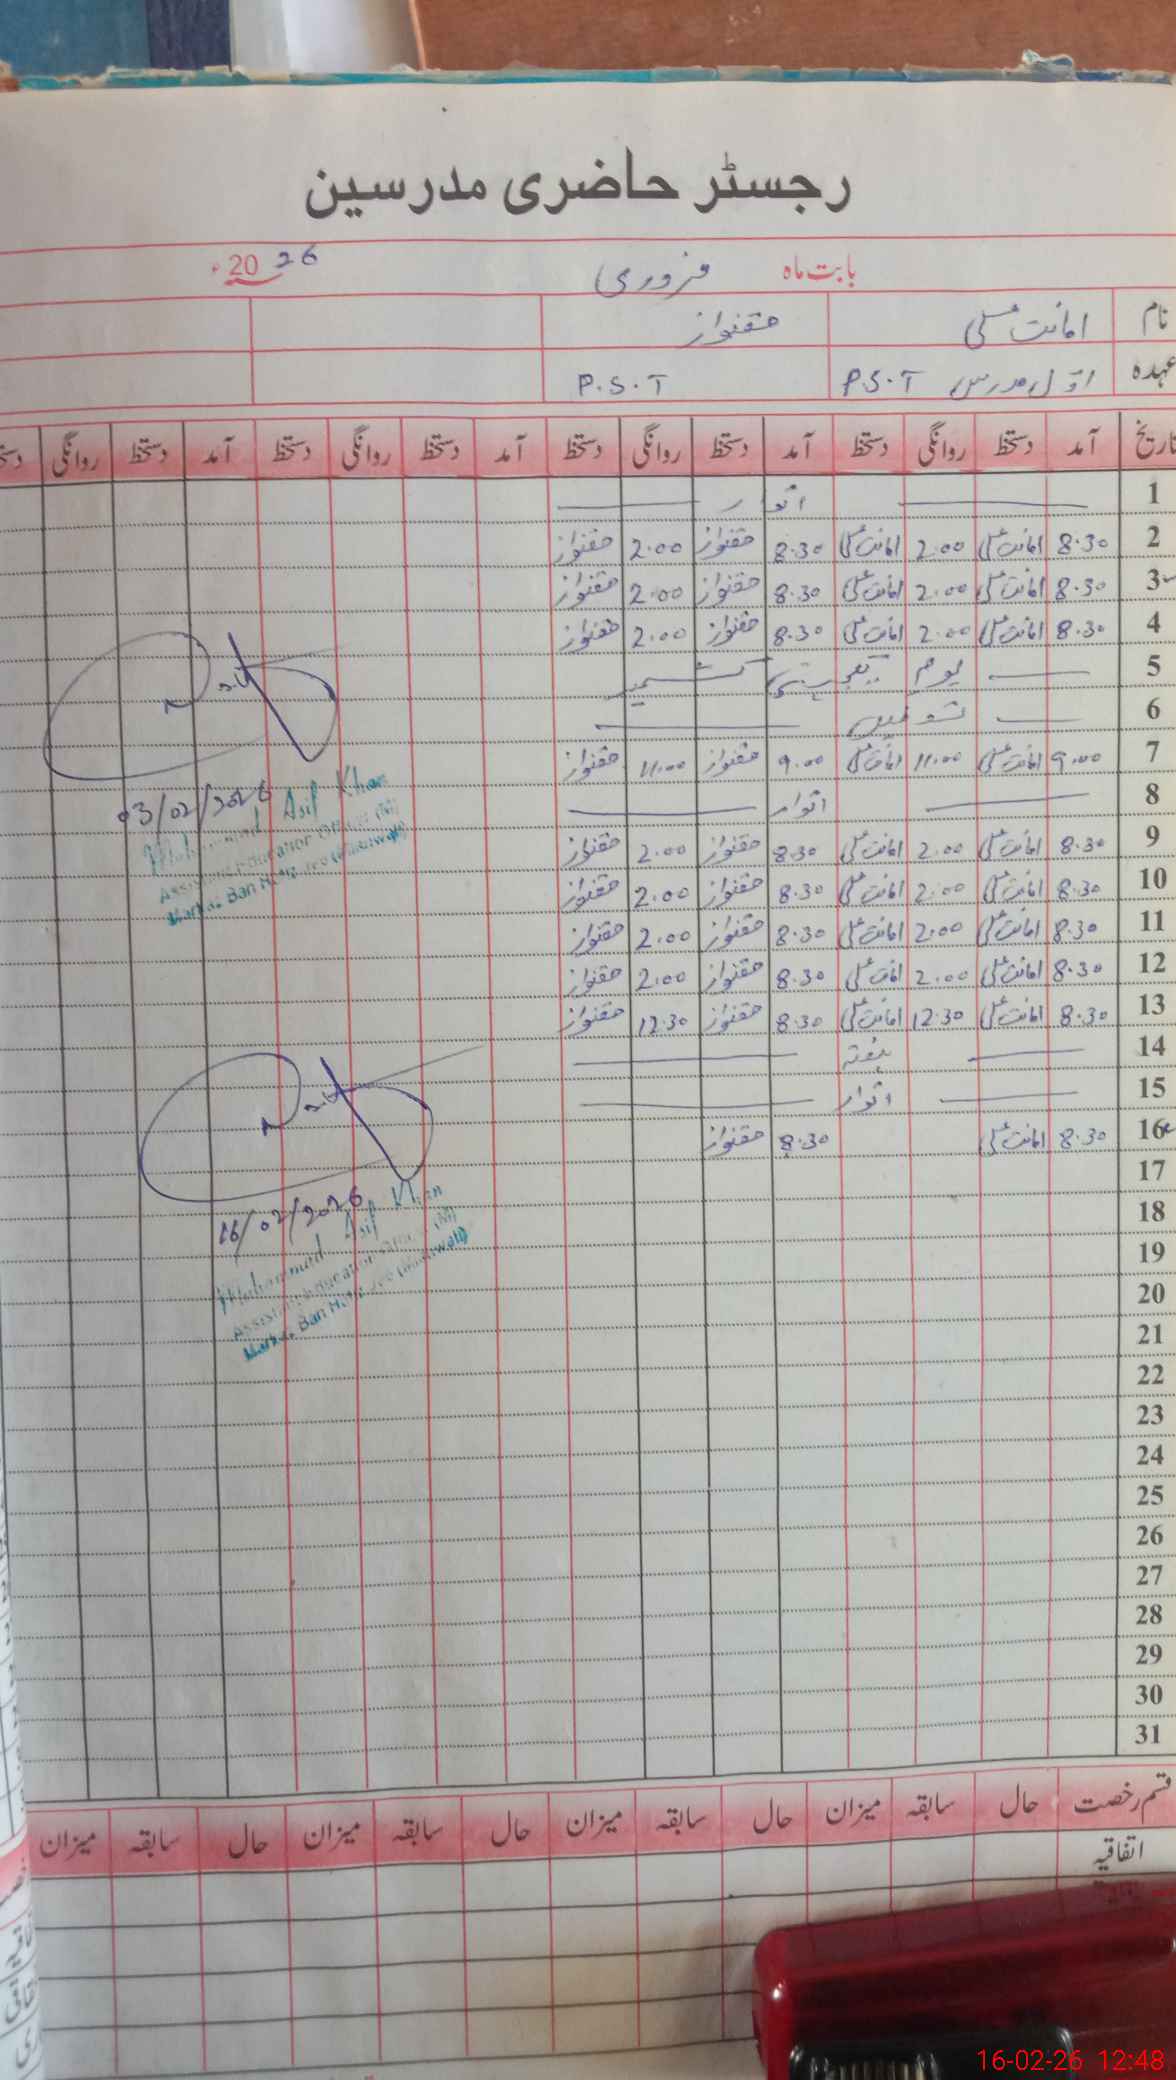 رجسٹر حاضری مدرسین
بابت ماہ فروری 2026ء
نام امانت علی حقنواز
عہدہ اول مدرس P.S.T P.S.T
تاریخ آمد دستخط روانگی دستخط آمد دستخط روانگی دستخط آمد دستخط روانگی دستخط آمد دستخط روانگی
1 اتوار
2 8.30 امانت علی 2.00 امانت علی 8.30 حقنواز 2.00 حقنواز
3 8.30 امانت علی 2.00 امانت علی 8.30 حقنواز 2.00 حقنواز
4 8.30 امانت علی 2.00 امانت علی 8.30 حقنواز 2.00 حقنواز
5 یوم یکجہتی کشمیر
6
7 9.00 امانت علی 11.00 امانت علی 9.00 حقنواز 11.00 حقنواز
8 اتوار
9 8.30 امانت علی 2.00 امانت علی 8.30 حقنواز 2.00 حقنواز
10 8.30 امانت علی 2.00 امانت علی 8.30 حقنواز 2.00 حقنواز
11 8.30 امانت علی 2.00 امانت علی 8.30 حقنواز 2.00 حقنواز
12 8.30 امانت علی 2.00 امانت علی 8.30 حقنواز 2.00 حقنواز
13 8.30 امانت علی 12.30 امانت علی 8.30 حقنواز 12.30 حقنواز
14 ہفتہ
15 اتوار
16 8.30 امانت علی 8.30 حقنواز
17
18
19
20
21
22
23
24
25
26
27
28
29
30
31
03/02/2026
Muhammad Asif Khan
Assistant Education Officer (M)
Markaz Ban Hafiz
16/02/2026
Muhammad Asif Khan
Assistant Education Officer (M)
Markaz Ban Hafiz
قسم رخصت حال سابقہ میزان حال سابقہ میزان حال سابقہ میزان حال سابقہ میزان
اتفاقیہ
16-02-26 12:48